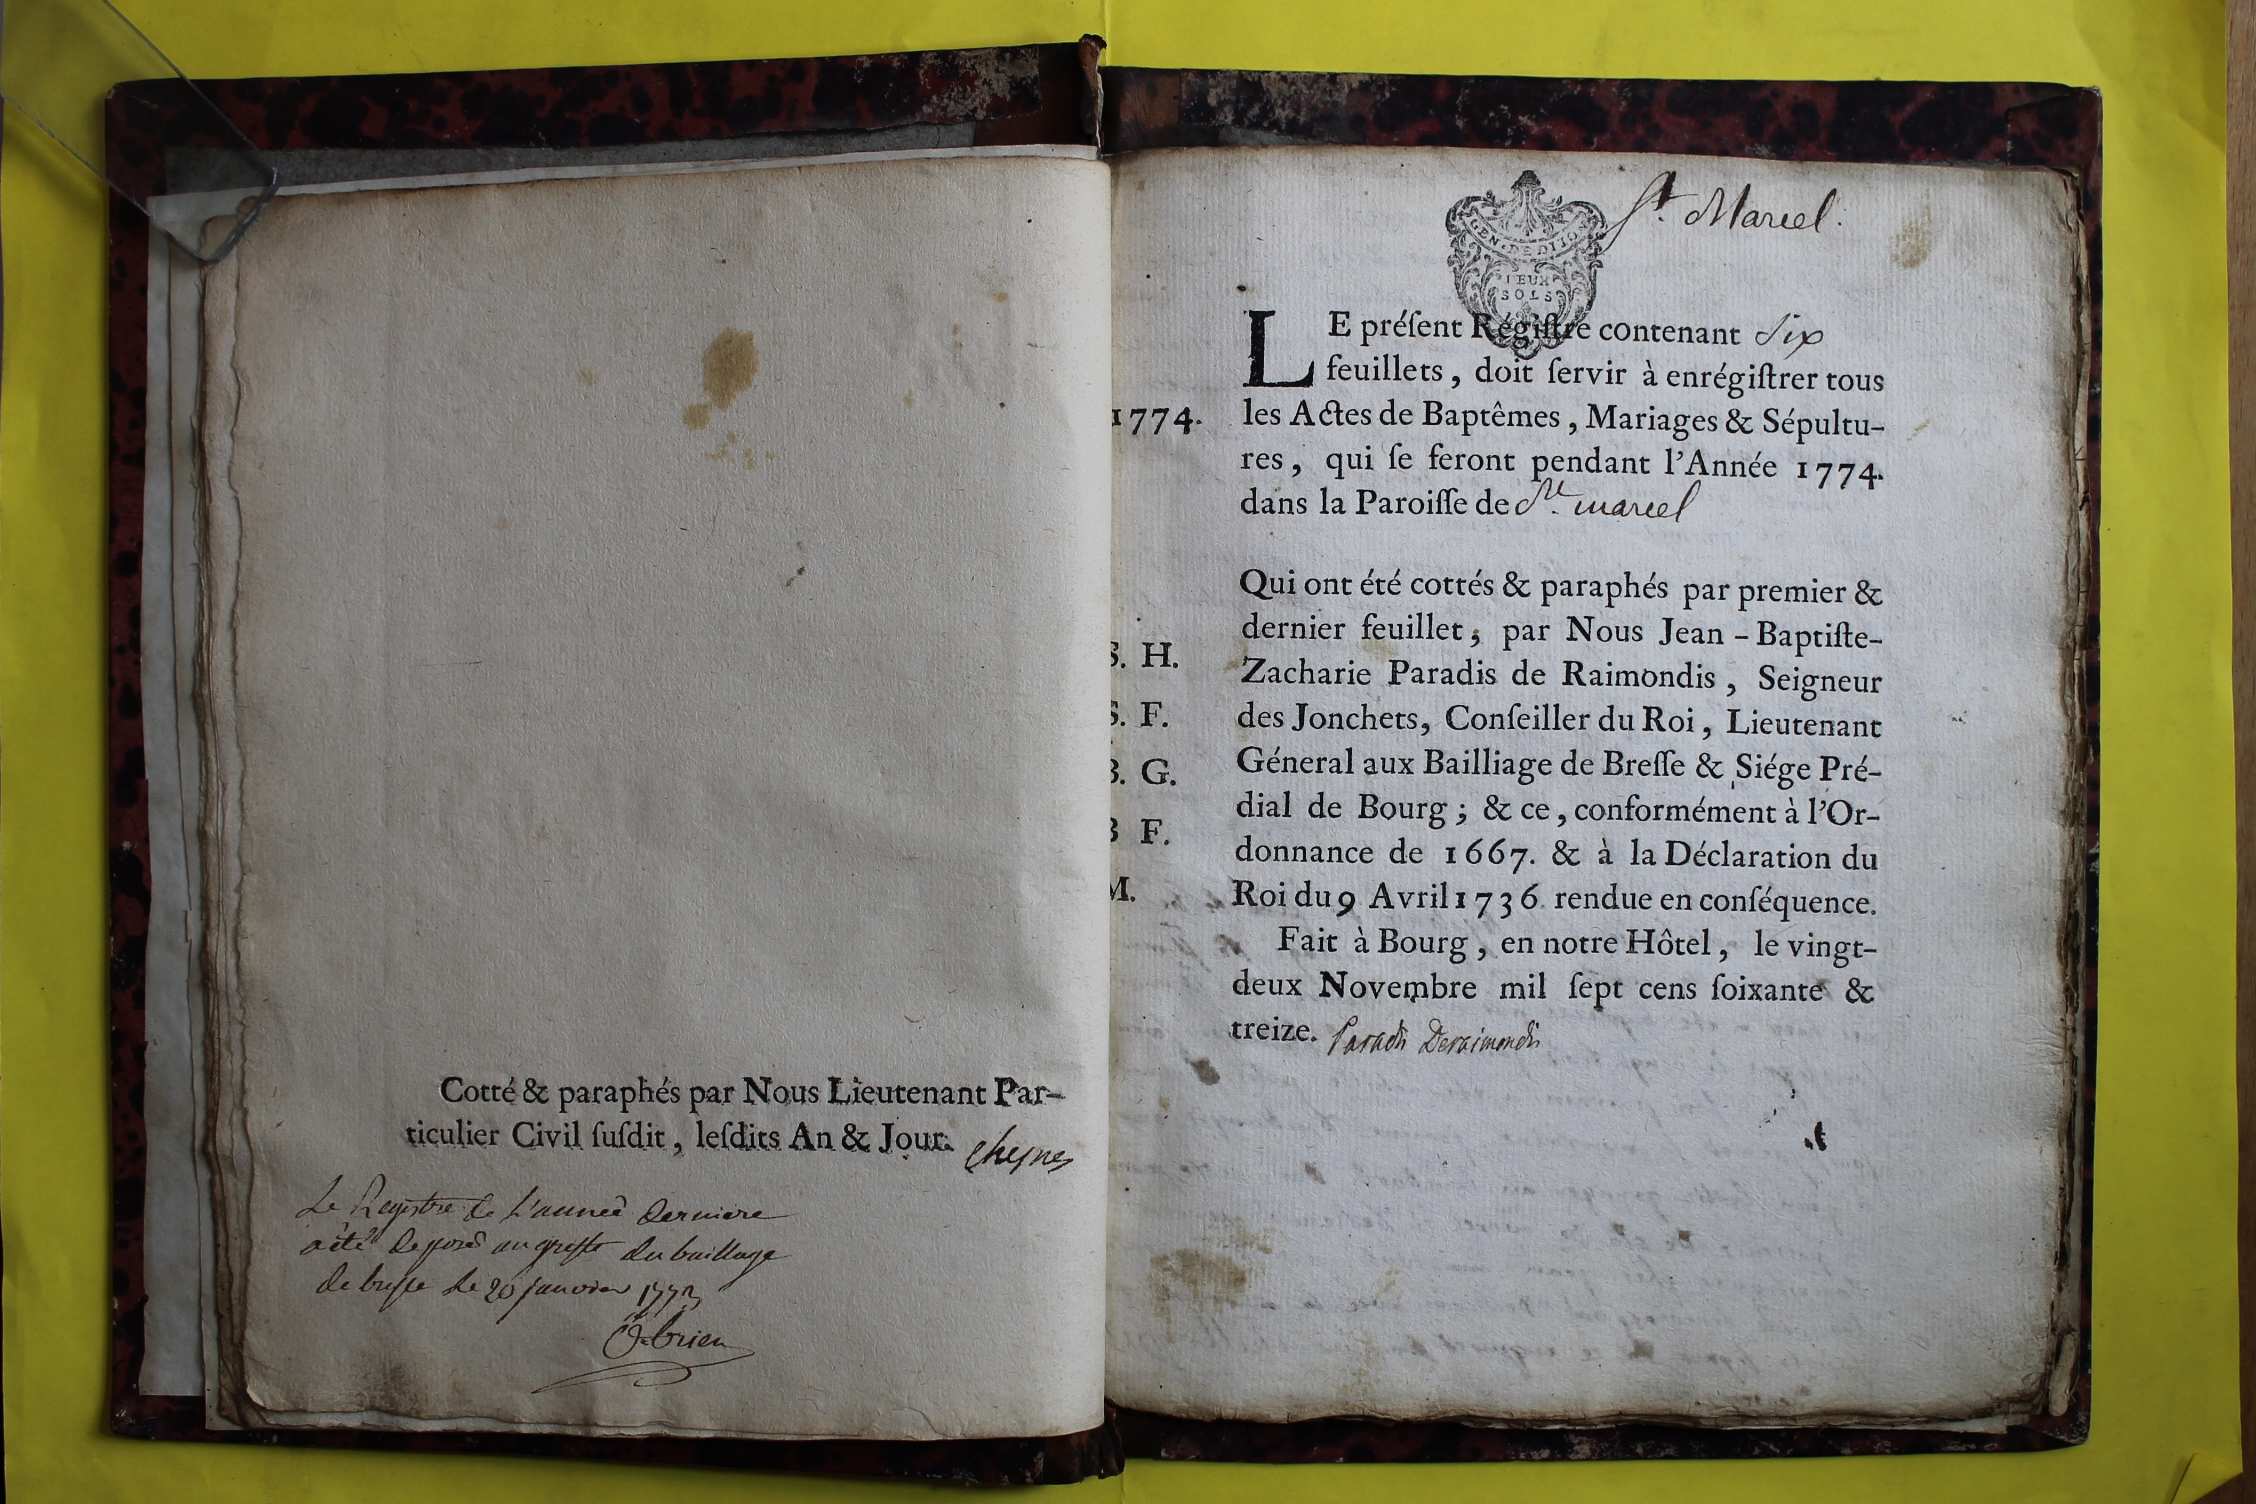 Cotté & paraphés par Nous Lieutenant Par-
ticulier Civil ſuſdit, leſdits An & Jour. Cheynes
Le Registre de L'année derniere
a été deposé au greffe du baillage
de bresse le 20 janvier 1773
O-brien
St. Marcel.
GEN. DE DIJON
DEUX
SOLS
LE préſent Régiſtre contenant Six
feuillets, doit ſervir à enrégiſtrer tous
1774. les Actes de Baptêmes, Mariages & Sépultu-
res, qui ſe feront pendant l'Année 1774.
dans la Paroiſſe de St. marcel
Qui ont été cottés & paraphés par premier &
dernier feuillet, par Nous Jean-Baptiſte-
S. H.
Zacharie Paradis de Raimondis, Seigneur
S. F.
des Jonchets, Conſeiller du Roi, Lieutenant
B. G.
Géneral aux Bailliage de Breſſe & Siége Pré-
dial de Bourg; & ce, conformément à l'Or-
B F.
donnance de 1667. & à la Déclaration du
M.
Roi du 9 Avril 1736 rendue en conſéquence.
Fait à Bourg, en notre Hôtel, le vingt-
deux Novembre mil ſept cens ſoixante &
treize. Paradis Deraimondis